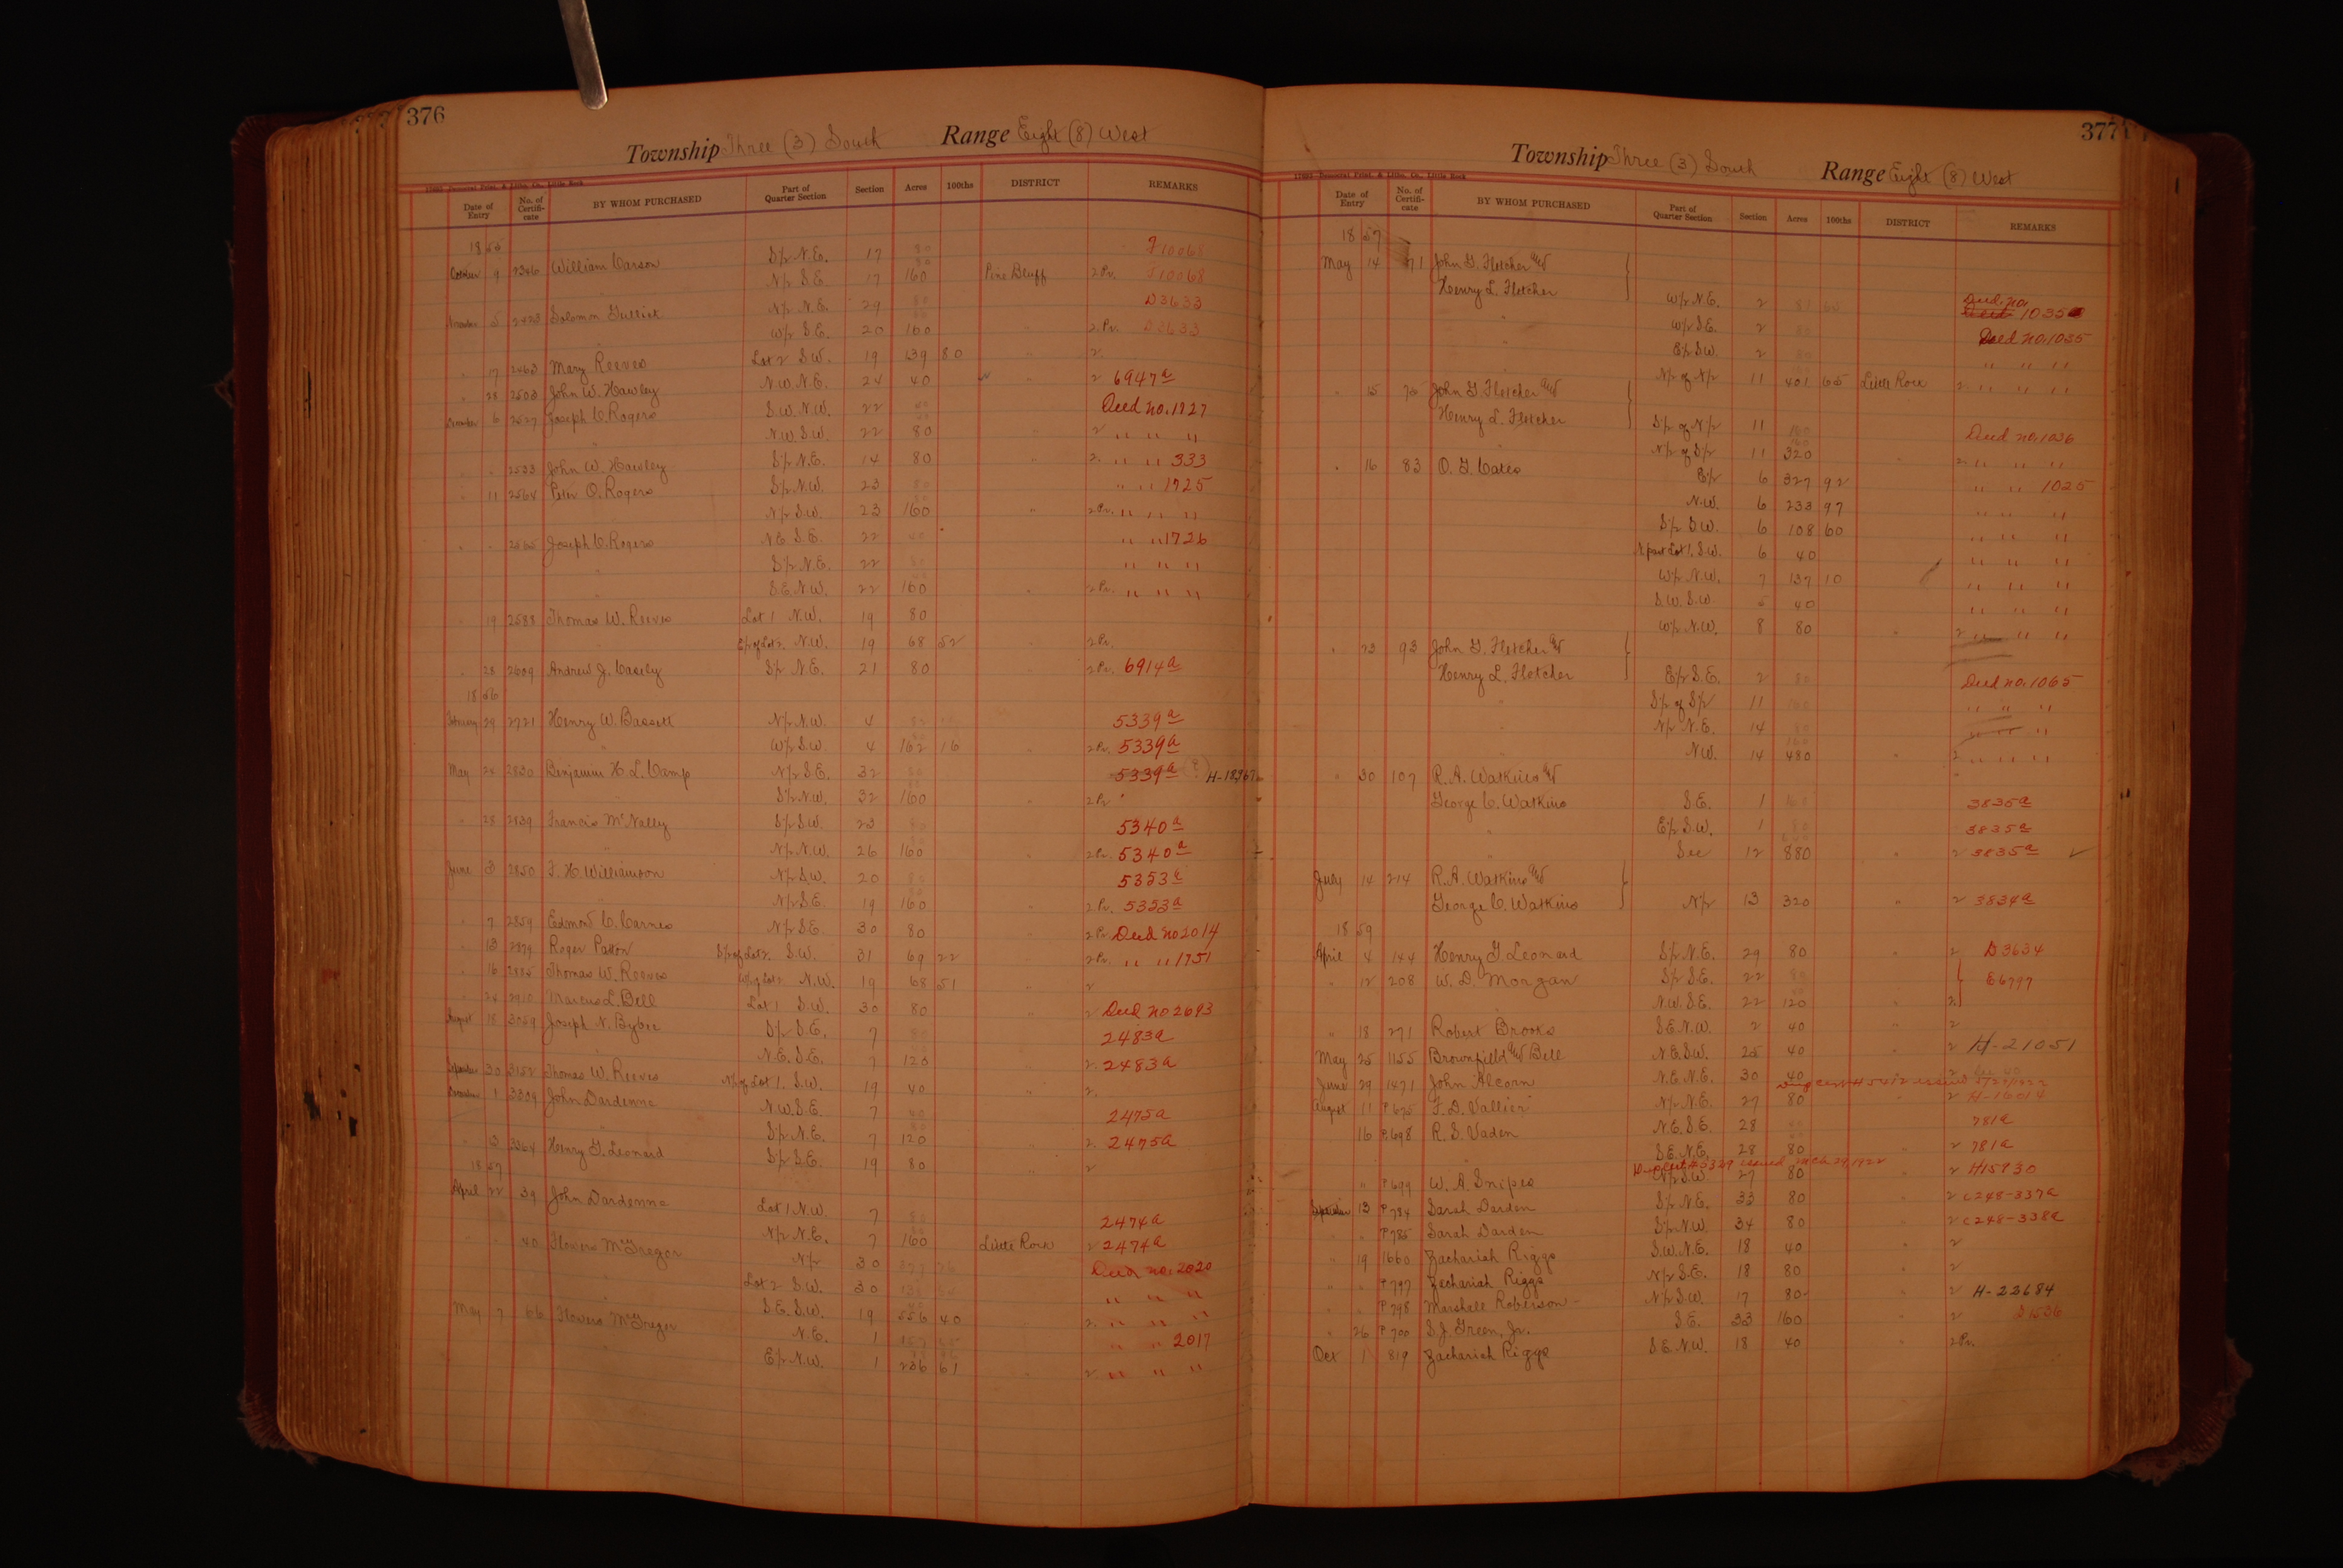 376
Township Three (3) South Range Eight (8) West
Date of Entry No. of Certifi-cate BY WHOM PURCHASED Part of Quarter Section Section Acres 100ths DISTRICT REMARKS
1855
S½ N.E. 17 80 J10068
October 9 2346 William Carson N½ S.E. 17 160 Pine Bluff 2 Pr. J10068
N½ N.E. 29 80 D3633
November 5 2423 Solomon W½ S.E. 20 160 " 2 Pr. D3633
" 17 2463 Mary Reeves Lot 2 S.W. 19 139 80 " 2
" 28 2503 John W. Hawley N.W. N.E. 24 40 " 2 6947a
December 6 2527 Joseph C. Rogers S.W. N.W. 22 40 Deed no. 1727
" N.W. S.W. 22 80 " 2 " " "
" " 2533 John W. Hawley S½ N.E. 14 80 " 2. " " 333
" 11 2564 Peter O. Rogers S½ N.W. 23 80 " " 1725
N½ S.W. 23 160 " 2 Pr. " " "
" " 2565 Joseph C. Rogers N.E. S.E. 22 40 " " 1726
" S½ N.E. 22 80 " " "
S.E. N.W. 22 160 " 2 Pr. " " "
" 19 2588 Thomas W. Reeves Lot 1 N.W. 19 80
E½ of Lot 2. N.W. 19 68 52 " 2 Pr.
" 28 2609 Andrew J. Casely S½ N.E. 21 80 " 2 Pr. 6914a
1856
February 29 2721 Henry W. Bassett N½ N.W. 4 80 5339a
" W½ S.W. 4 162 16 " 2 Pr. 5339a
May 24 2830 Benjamin H. L. Camp N½ S.E. 32 80 5339a (?) H-18267
S½ N.W. 32 160 " 2 Pr
" 28 2839 Francis McNally S½ S.W. 23 80 5340a
" N½ N.W. 26 160 " 2 Pr. 5340a
June 3 2850 F. H. Williamson N½ S.W. 20 80 5353a
" N½ S.E. 19 160 " 2 Pr. 5353a
" 7 2859 Edmond C. Carnes N½ S.E. 30 80 " 2 Pr. Deed no 2014
" 13 2879 Roger Patton S½ of Lot 2. S.W. 31 69 22 " 2 Pr. " " 1751
" 16 2885 Thomas W. Reeves W½ of Lot 2 N.W. 19 68 51 " 2
" 24 2910 Marcus L. Bell Lot 1 S.W. 30 80 " 2 Deed no 2693
August 18 3059 Joseph N. Bybee S½ S.E. 7 80 2483a
" N.E. S.E. 7 120 " 2. 2483a
September 30 3152 Thomas W. Reeves N½ of Lot 1. S.W. 19 40 " 2.
December 1 3309 John Dardenne N.W. S.E. 7 40 2475a
S½ N.E. 7 120 " 2. 2475a
" 3 3364 Henry G. Leonard S½ S.E. 19 80 " 2
1857
April 22 39 John Dardenne Lot 1 N.W. 7 80 2474a
N½ N.E. 7 160 Little Rock 2 2474a
" " 40 Flovers McGregor N½ 30 Deed no. 2020
" Lot 2 S.W. 30 " " "
S.E. S.W. 19 556 40 " 2. " " "
May 7 66 Flovers McGregor N.E. 1 " " 2017
" E½ N.W. 1 236 61 " 2. " " "
377
Township Three (3) South Range Eight (8) West
Date of Entry No. of Certifi-cate BY WHOM PURCHASED Part of Quarter Section Section Acres 100ths DISTRICT REMARKS
1857
May 14 71 John G. Fletcher and
Henry L. Fletcher W½ N.E. 2 81 65 Deed no. 1035
" W½ S.E. 2 80 Deed no. 1035
E½ S.W. 2 80 " " "
N½ of N½ 11 401 65 Little Rock 2. " " "
" 15 75 John G. Fletcher and
Henry L. Fletcher S½ of N½ 11 160 Deed no. 1036
N½ of S½ 11 320 " 2. " " "
" 16 83 O. G. Cates E½ 6 327 92 " " 1025
N.W. 6 233 97 " " "
S½ S.W. 6 108 60 " " "
N. part Lot 1. S.W. 6 40 " " "
W½ N.W. 7 137 10 " " "
S.W. S.W. 5 40 " " "
W½ N.W. 8 80 " 2 " " "
" 23 93 John G. Fletcher and
Henry L. Fletcher E½ S.E. 2 80 Deed no. 1065
" S½ of S½ 11 160 " " "
" N½ N.E. 14 80 " " "
" N.W. 14 480 " 2 " " "
" 30 107 R. A. Watkins and
George C. Watkins S.E. 1 160 3835a
" E½ S.W. 1 80 3835a
" Sec 12 880 " 2 3835a
July 14 214 R. A. Watkins and
George C. Watkins N½ 13 320 " 2 3834a
1859
April 4 144 Henry G Leonard S½ N.E. 29 80 2 D 3634
" 12 208 W. D. Morgan S½ S.E. 22 80 E6797
N.W. S.E. 22 120 " 2
" 18 271 Robert Brooks S.E. N.W. 2 40 " 2
May 25 1155 Brownfield and Bell N.E. S.W. 25 40 " 2 H-21051
June 29 1471 John Alcorn N.E. N.E. 30 40 2
August 11 P 675 F. D. Vallier N½ N.E. 27 80 " 2 H-16014
16 P. 698 R. S. Vaden N.E. S.E. 28 781a
S.E. N.E. 28 80 " 2 781a
" P 699 W. A. Snipes N½ S.W. 27 80 " 2 H15930
September 13 P 784 Sarah Darden S½ N.E. 33 80 " 2 C248-337a
" " P 785 Sarah Darden S½ N.W. 34 80 " 2 C248-338a
" 19 1660 Zachariah Riggs S.W. N.E. 18 40 " 2
" " P 797 Zachariah Riggs N½ S.E. 18 80 " 2
" " P 798 Marshall Roberson N½ S.W. 17 80 " 2 H-23684
" 26 P 700 S. J. Green, Jr. S.E. 33 160 " 2
Oct 1 819 Zachariah Riggs S.E. N.W. 18 40 " 2 Pr.